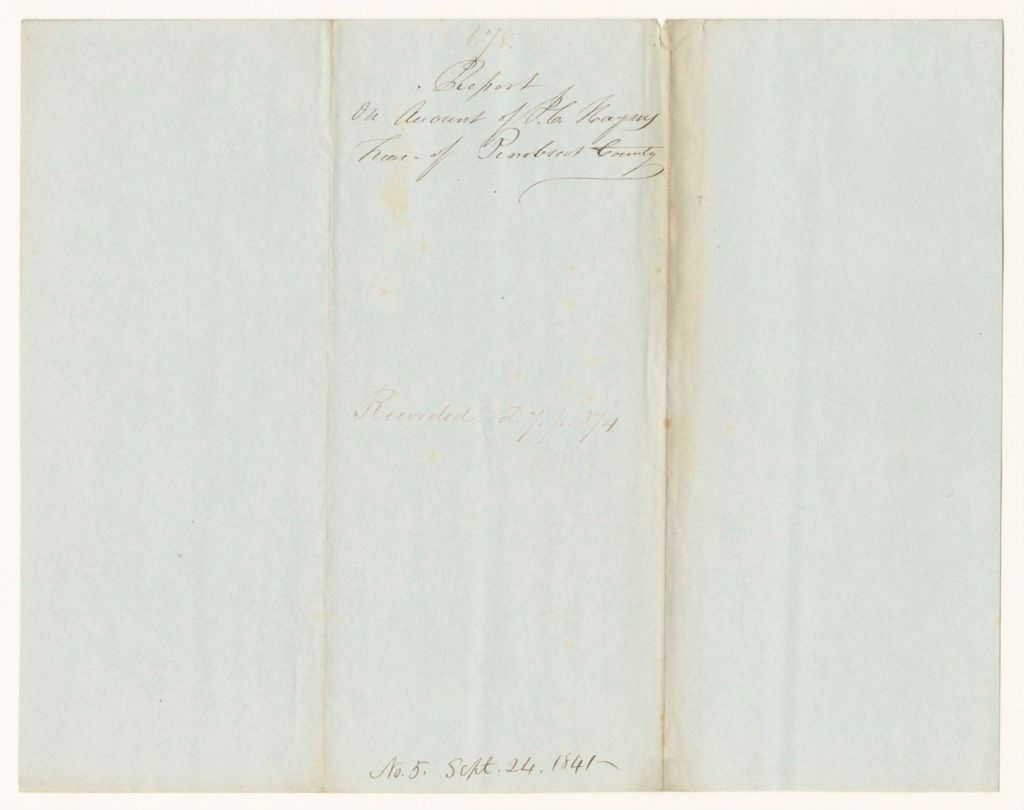 678.
Report
On Account of J. C. Haynes
Treas. of Penobscot County
Recorded Vol. 7. p. 374
No. 5. Sept. 24. 1841